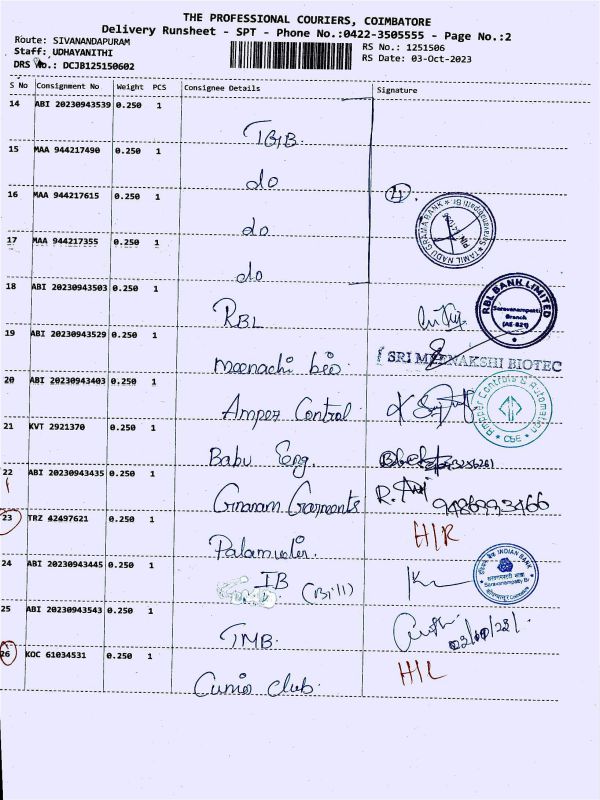 THE PROFESSIONAL COURIERS, COIMBATORE
Delivery Runsheet - SPT - Phone No.:0422-3505555 - Page No.:2
Route: SIVANANDAPURAM
RS No.: 1251506
Staff: UDHAYANITHI
RS Date: 03-Oct-2023
DRS No.: DCJB125150602
S No Consignment No Weight PCS Consignee Details Signature
14 ABI 20230943539 0.250 1
15 MAA 944217490 0.250 1
do
16 MAA 944217615 0.250 1
do
4
TAMIL NADU GRAMA BANK
17 MAA 944217355 0.250 1
do
18 ABI 20230943503 0.250 1
RBL
RBL BANK LIMITED
Saravanampatti
Branch
(AE-821)
19 ABI 20230943529 0.250 1
meenachi bio
SRI MEENAKSHI BIOTEC
20 ABI 20230943403 0.250 1
Ampez Control
Amper Controls & Automation
CBE
21 KVT 2921370 0.250 1
Babu Eng.
22 ABI 20230943435 0.250 1
Gnanam Garments
R.
9486993466
23 TRZ 42497621 0.250 1
H/R
24 ABI 20230943445 0.250 1
IB (Bill)
INDIAN BANK
Saravanampatty Br
25 ABI 20230943543 0.250 1
TMB
26 KOC 61034531 0.250 1
H/L
club